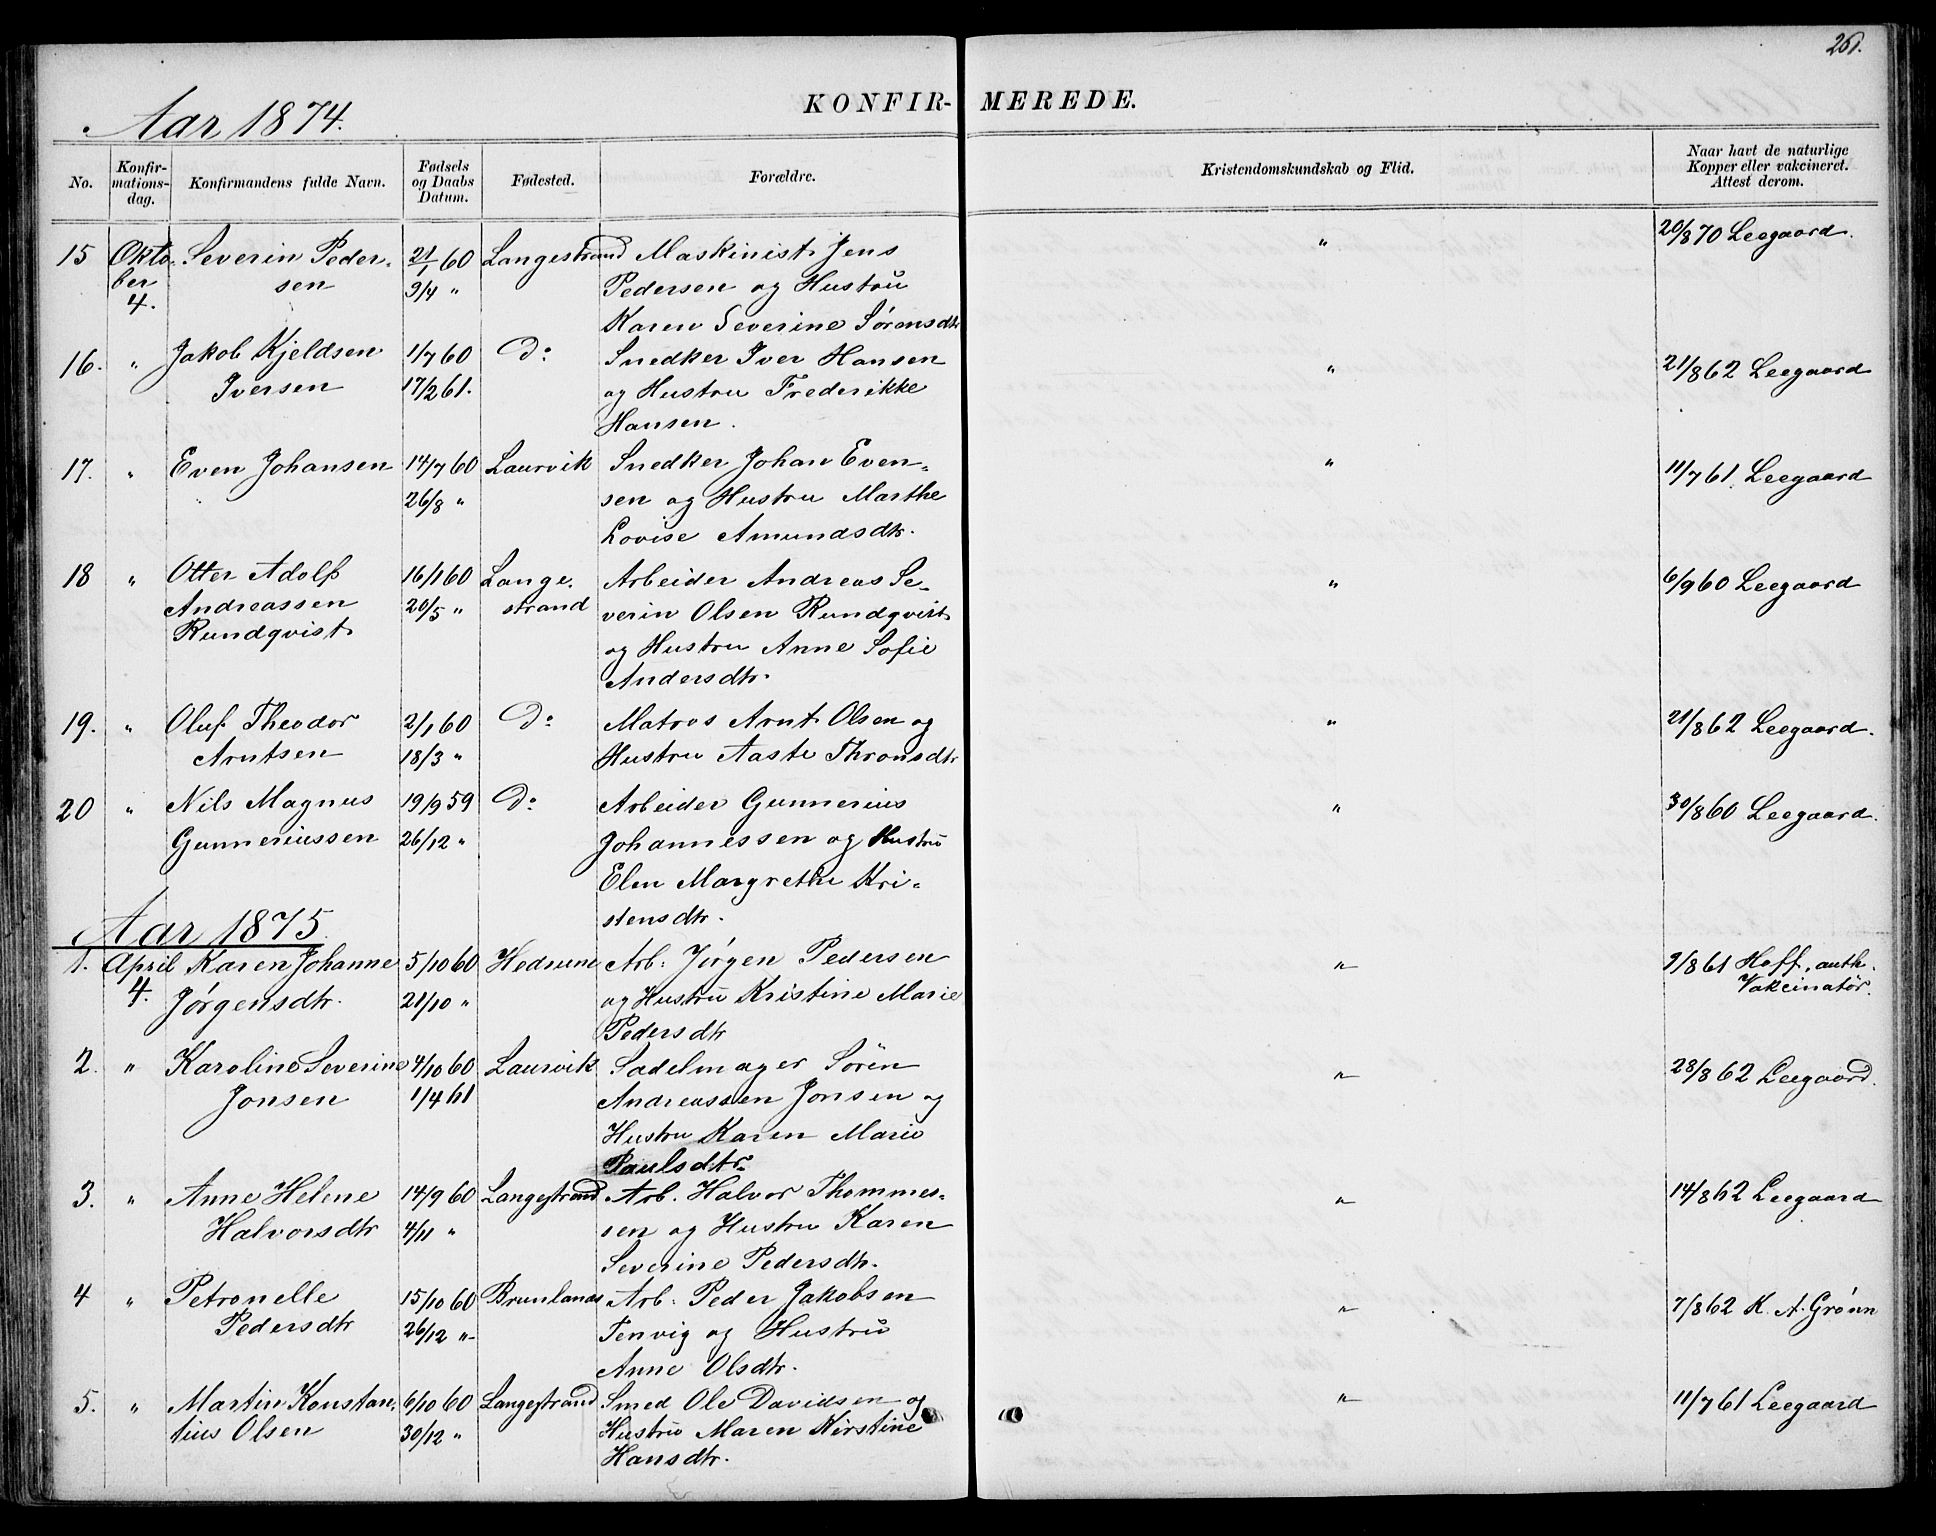 261.
Aar 1874.
KONFIR- MEREDE.
No.
Konfir-
mations-
dag.
Konfirmandens fulde Navn.
Fødsels
og Daabs
Datum.
Fødested.
Forældre.
Kristendomskundskab og Flid.
Naar havt de naturlige
Kopper eller vakcineret.
Attest derom.
15 Okto- Severin Peder- 21/1 60 Langestrand Maskinist Jens " 20/8 70 Leegaard.
ber sen 9/4 " Pedersen og Hustru
4. Karen Severine Sørensdtr
16. " Jakob Kjeldsen 1/7 60 Do Snedker Iver Hansen " 21/8 62 Leegaard
Iversen 17/2 61. og Hustru Frederikke
Hansen.
17. " Even Johansen 14/7 60 Laurvik Snedker Johan Even- " 11/7 61 Leegaard
26/8 " sen og Hustru Marthe
Lovise Amundsdtr.
18 " Otter Adolf 16/1 60 Lange- Arbeider Andreas Se- " 6/9 60 Leegaard
Andreassen 20/5 " strand verin Olsen Rundqvist
Rundqvist og Hustru Anne Sofie
Andersdtr.
19. " Oluf Theodor 2/1 60 Do Matros Arnt Olsen og " 21/8 62 Leegaard.
Arntsen 18/3 " Hustru Aaste Thronsdtr
20 " Nils Magnus 19/9 59 Do Arbeider Gunnerius " 30/8 60 Leegaard.
Gunneriussen 26/12 " Johannessen og Hustru
Elen Margrethe Kri-
stensdtr.
Aar 1875
1. April Karen Johanne 5/10 60 Hedrum Arb. Jørgen Pedersen " 9/8 61 Hoff, auth.
4. Jørgensdtr. 21/10 " og Hustru Kristine Marie Vakcinatør.
Pedersdtr
2. " Karoline Severine 4/10 60 Laurvik Sadelmager Sören " 28/8 62 Leegaard.
Jonsen 1/4 61 Andreassen Jonsen og
Hustru Karen Marie
Paulsdtr.
3. " Anne Helene 14/9 60 Langestrand Arb. Halvor Thommes- " 14/8 62 Leegaard
Halvorsdtr 4/11 " sen og Hustru Karen
Severine Pedersdtr.
4 " Petronelle 15/10 60 Brunlanæs Arb. Peder Jakobsen " 7/8 62 K. A. Grönn
Pedersdtr 26/12 " Tenvig og Hustru
Anne Olsdtr.
5. " Martin Konstan- 6/10 60 Langestrand Smed Ole Davidsen og " 11/7 61 Leegaard
tius Olsen 30/12 " Hustru Maren Kirstine
Hansdtr.